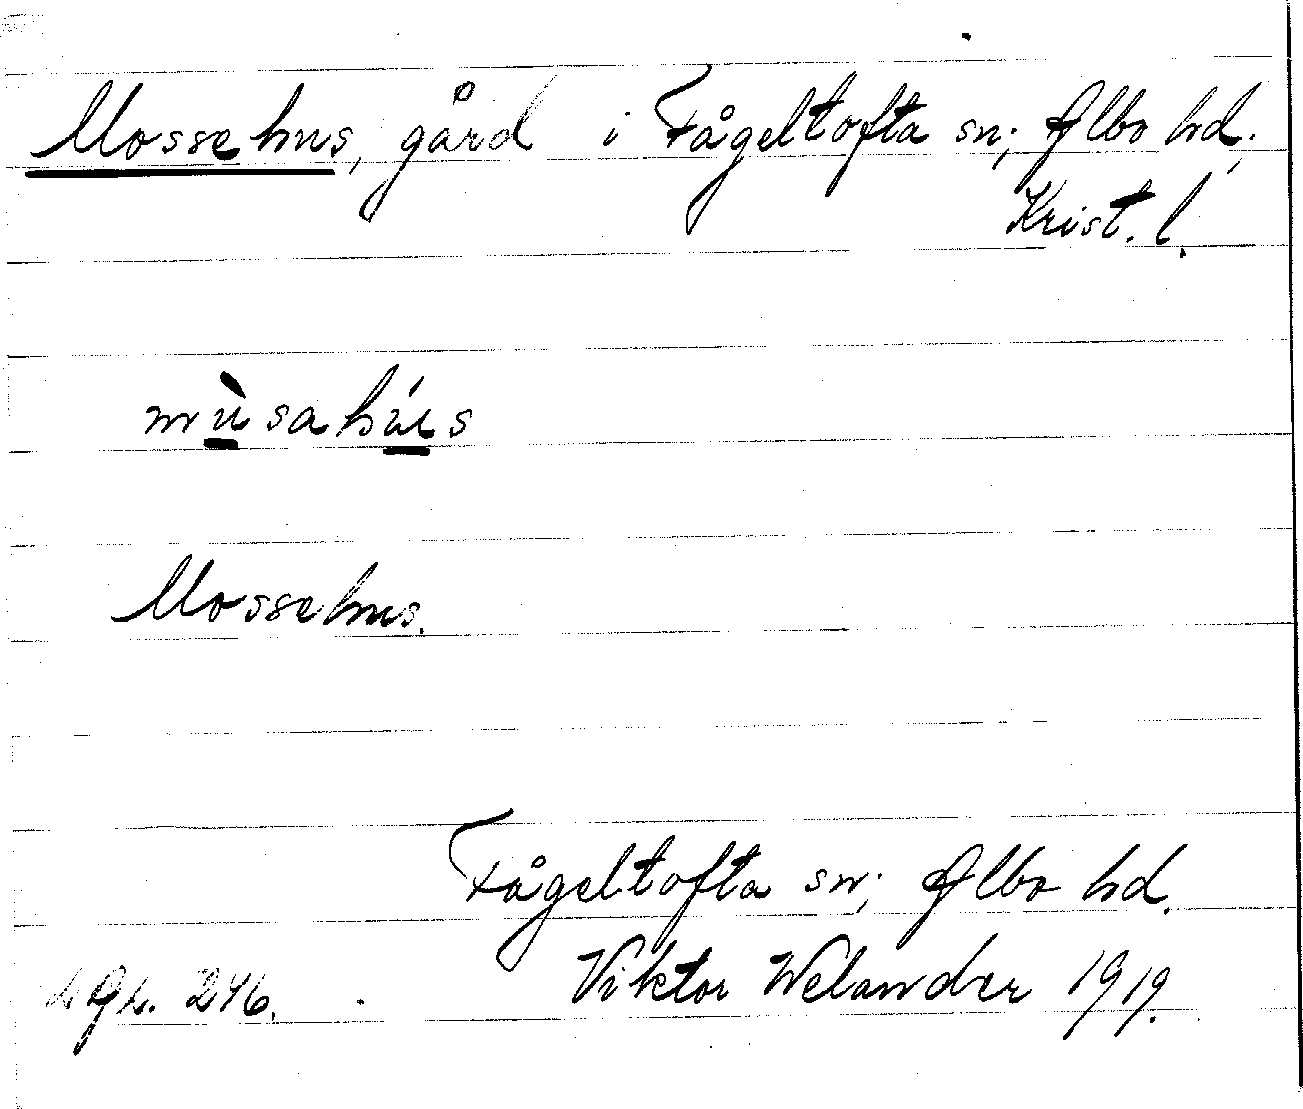 Mossehus, gård i Fågeltofta sn; Albo hd;
Krist. l.
mùsahús
Mossehus.
Fågeltofta sn; Albo hd.
Viktor Welander 1919.
246.